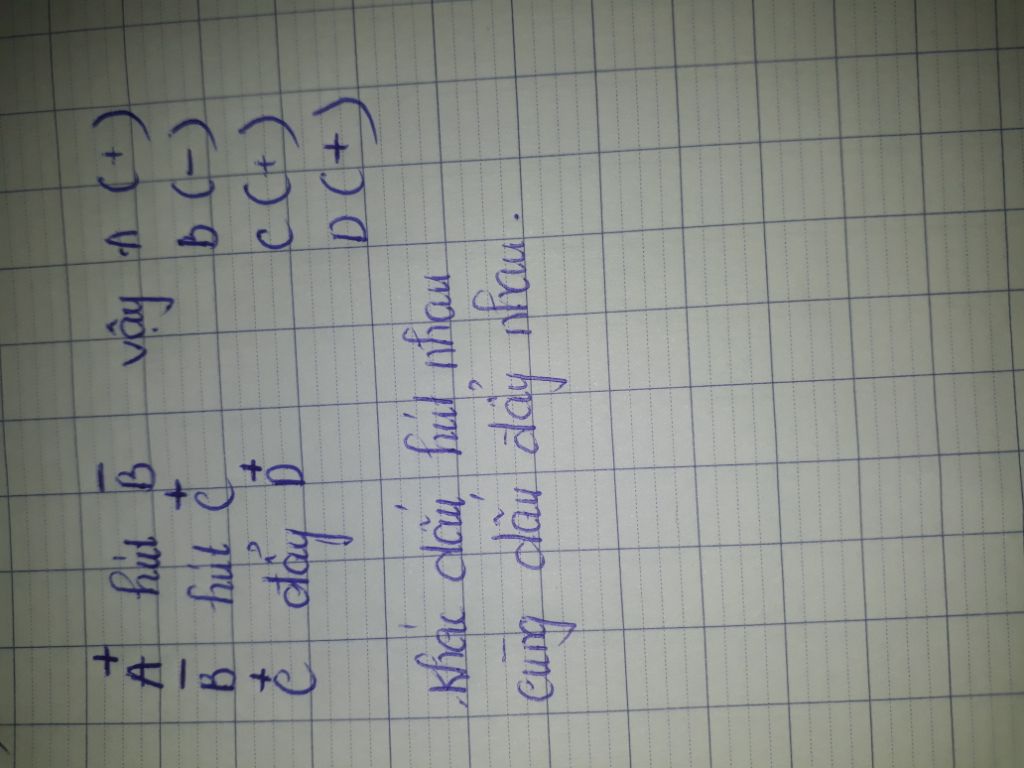 + −
A hút B vậy A (+)
− +
B hút C B (−)
+ +
C đẩy D C (+)
D (+)
khác dấu hút nhau
cùng dấu đẩy nhau.